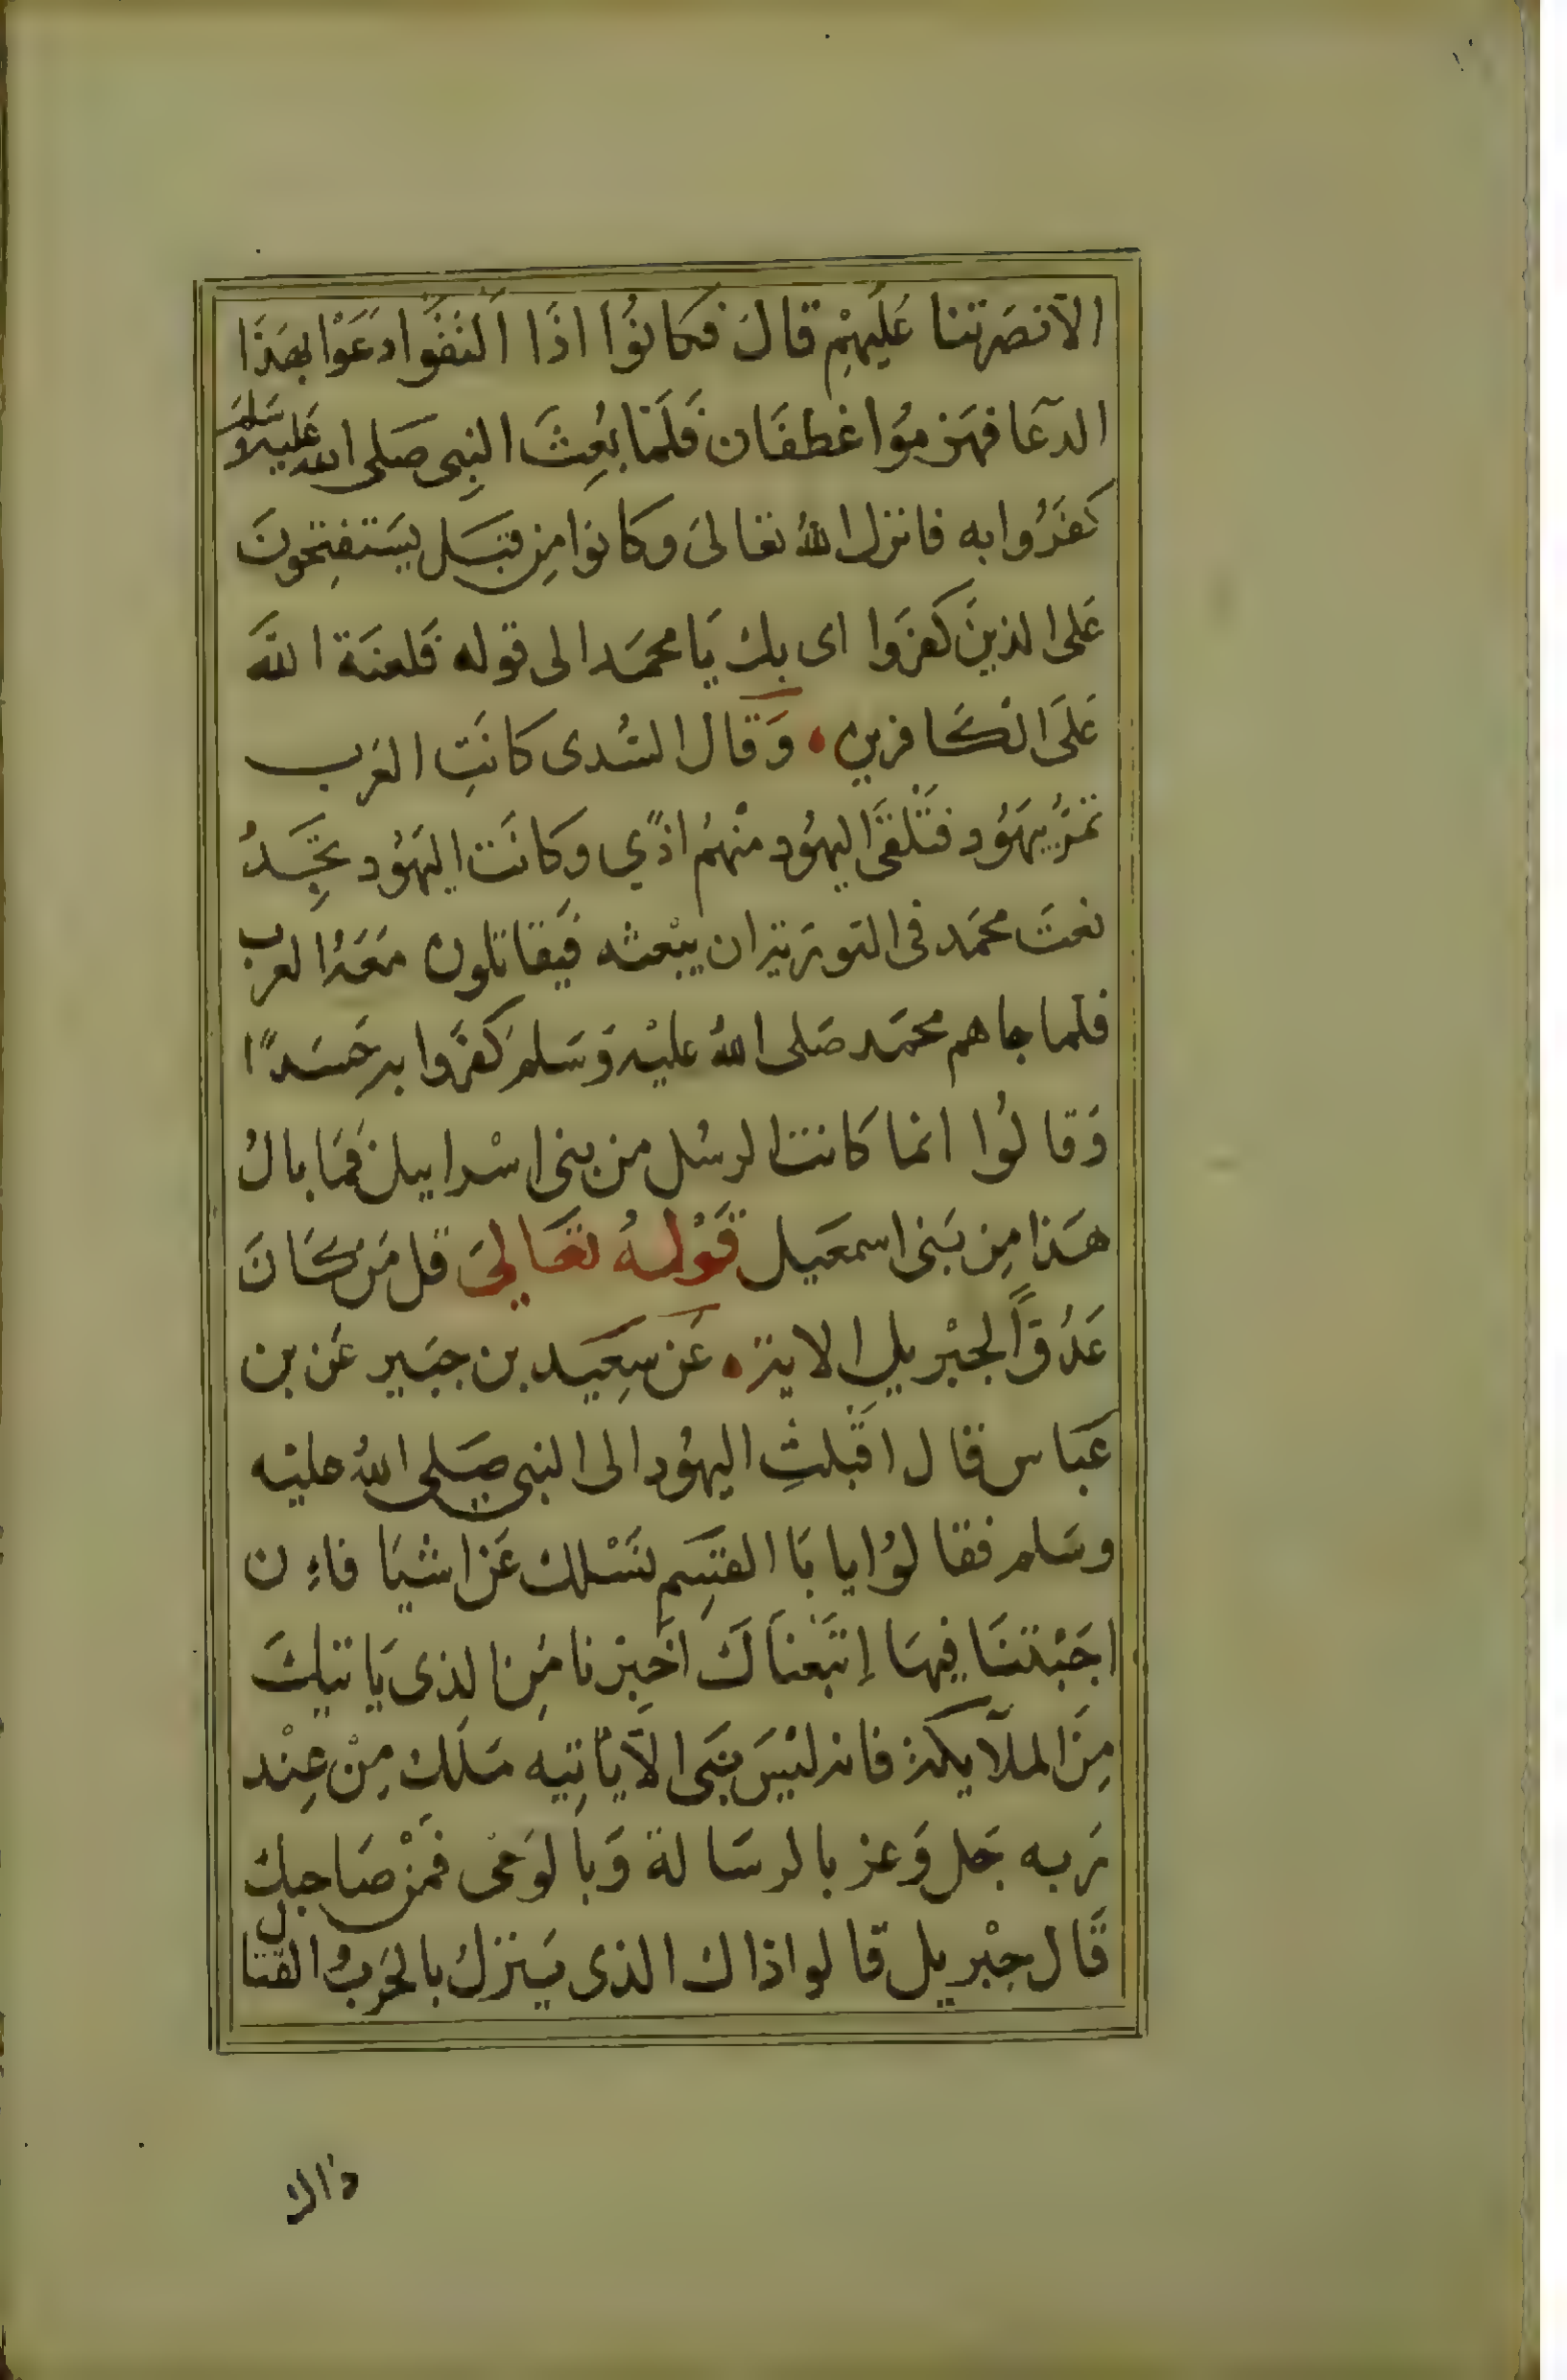 الا نصرتنا عَلَيْهِمْ قالَ فكانوُا اذَا الْتَقَوا دَعَوْا بهَذَا
الدعَا فهزموُا غطفَان فَلَما بُعِثَ النبِى صَلى الله عَليه وسَلم
كفَرُوا به فانزل اللهُ تعَالىَ وكانوا مِن قبَل يَستَفتِحونَ
عَلى الذينَ كفرَوا اى بك يَا محمَد الى قوله فَلعنَة اللهَ
عَلَى الكَافرين وَقَال السُدى كانَتِ العَرب
تمُرُّ بيهَوُد فتَلْقَى اليهُود منْهُم اذًي وكانَت اليَهُود تَجِدُ
نعتَ محمَد فى التورية ان يبْعثه فَيقاتلون مَعَهُ العرب
فلما جاهم محمَد صَلى اللهُ عليْه وَسَلم كفَروا به حَسَدًا
وَقالُوا انما كانت الرسُل من بنى اسْراييل فمَا بالُ
هَذا مِن بَنى اسمعَيل قَوْلهُ تعَالىَ قل مَن كَانَ
عَدُوًّا لجبْريل الاية عَن سِعَيد بن جبَير عَن بن
عَباس قال اقَبلتِ اليهُود الى النبى صَلى اللهُ عليْه
وسَلم فقالوُا يا با القسِم نَسْلك عَن اشيَا فاءِن
اجَبْتنَا فيهَا اِتبَعناكَ اَخبِرنا مَن الذى يَاتيكَ
مِنَ الملآيكة فانه ليْسَ نبَى الا يَاتِيه مَلَك مِنْ عِنْد
رَبه جَل وَعز بالرسَالة وَبالوَحْى فمَنْ صَاحبك
قَال جِبْريل قالوا ذاك الذى يَنزل بالحَرب والقتال
ذاك